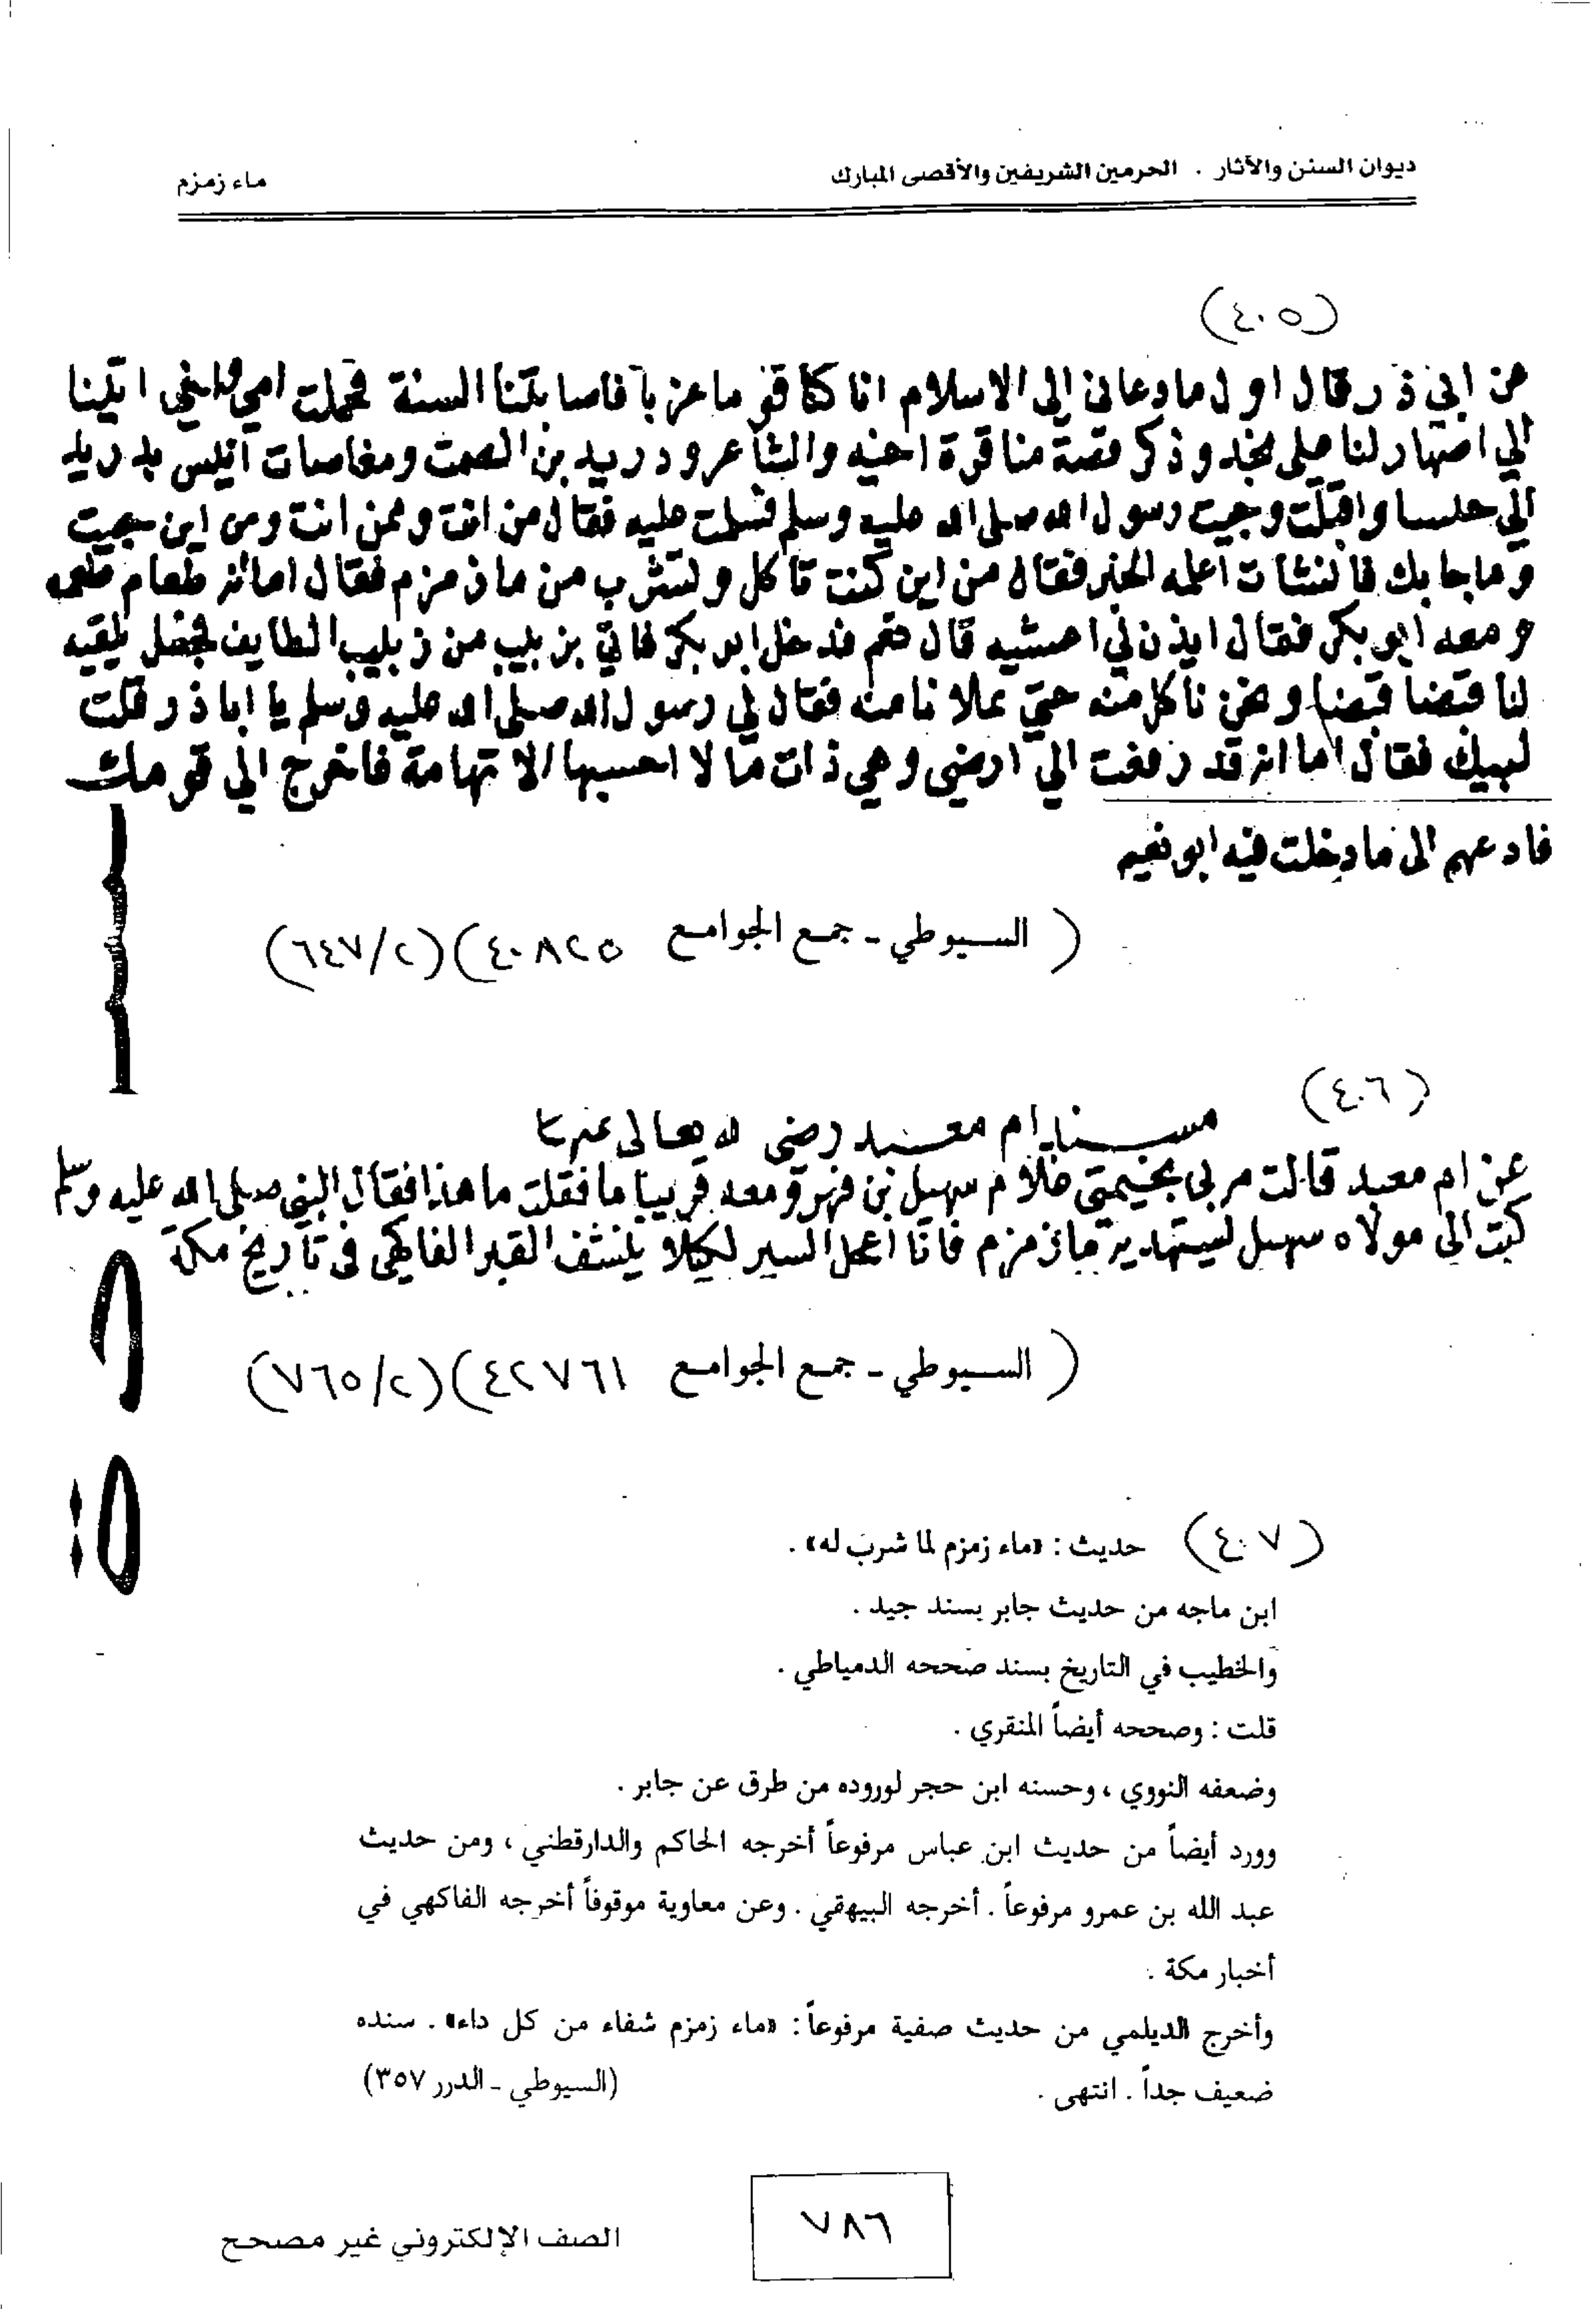 ديوان السنن والآثار . الحرمين الشريفين والأقصى المبارك
ماء زمزم
(٤٠٥)
عن ابي ذر قال اول ما دعاني الى الاسلام انا كنا قوما عزبا فاصابتنا السنة فحملت امي واخي انيسا
الي اصهار لنا على نجد وذكر قصة منافرة اخيه والشاعر ودريد بن الصمت انيس دريد
الي واقبلت وجيت رسول الله صلى الله عليه وسلم فسلمت عليه فقال من انت وممن انت ومن اين جيت
وما جا بك فانشات اعلمه الخبر فقال من اين كنت تاكل وتشرب من ما زمزم فقال اما انه طعام طعم
ومعه ابو بكر فقال ايذن لي اعشيه قال نعم فدخل ابو بكر فاتي بزبيب من زبيب الطايف فجعل يلقيه
لنا قبضا قبضا ونحن ناكل منه حتي تملانا منه فقال لي رسول الله صلى الله عليه وسلم يا ابا ذر قلت
لبيك فقال اما انه قد رفعت الي ارضي وهي ذات ما لا احسبها الا تهامة فاخرج الي قومك
فادعهم الى ما دخلت فيه ابو نعيم
(السيوطي - جمع الجوامع ٤٠٨٢٥) (٢/٦٤٧)
(٤٠٦)
مسند ام معبد رضى الله تعالى عنها
عن ام معبد قالت مر بى بخيمتى غلام سهيل بن ومعه فقلت ما هذا فقال النبى صلى الله عليه وسلم
كتب الى مولاه سهيل يستهديه ما زمزم فانا اعجل السير لكيلا ينشف القبر الفاكهى فى تاريخ مكة
(السيوطي - جمع الجوامع ٤٢٧٦١) (٢/٧٦٥)
(٤٠٧) حديث : «ماء زمزم لما شرب له» .
ابن ماجه من حديث جابر بسند جيد .
والخطيب في التاريخ بسند صححه الدمياطي .
قلت : وصححه أيضاً المنقري .
وضعفه النووي ، وحسنه ابن حجر لوروده من طرق عن جابر .
وورد أيضاً من حديث ابن عباس مرفوعاً أخرجه الحاكم والدارقطني ، ومن حديث
عبد الله بن عمرو مرفوعاً . أخرجه البيهقي . وعن معاوية موقوفاً أخرجه الفاكهي في
أخبار مكة .
وأخرج الديلمي من حديث صفية مرفوعاً : «ماء زمزم شفاء من كل داء» . سنده
ضعيف جداً . انتهى . (السيوطي - الدرر ٣٥٧)
٧٨٦
الصف الإلكتروني غير مصحح